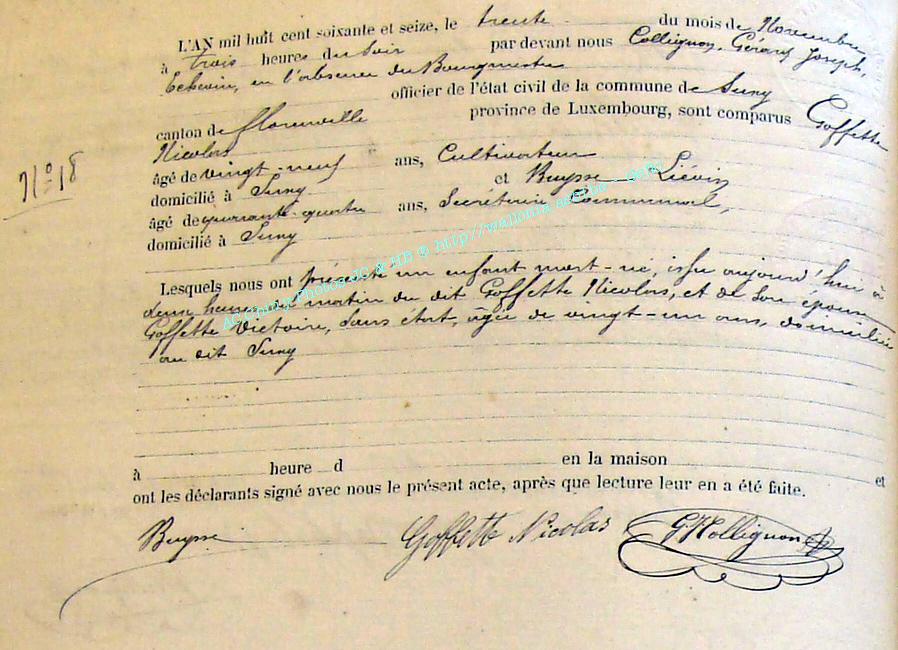 L'AN mil huit cent soixante et seize, le trente du mois de Novembre
à trois heures du soir par devant nous Collignon, Gérard Joseph,
Echevin, en l'absence du Bourgmestre
officier de l'état civil de la commune de Sugny
canton de florenville province de Luxembourg, sont comparus Goffette
Nicolas
N° 18
âgé de vingt-neuf ans, Cultivateur
domicilié à Sugny et Buysse Liévin
âgé de quarante-quatre ans, Secrétaire Communal,
domicilié à Sugny
Lesquels nous ont présenté un enfant mort-né, issu aujourd'hui à
deux heures du matin du dit Goffette Nicolas, et de son épouse
Goffette Victoire, sans état, agée de vingt-un ans, domiciliée
au dit Sugny
à heure d en la maison et
ont les déclarants signé avec nous le présent acte, après que lecture leur en a été faite.
Buysse Goffette Nicolas G J Collignon